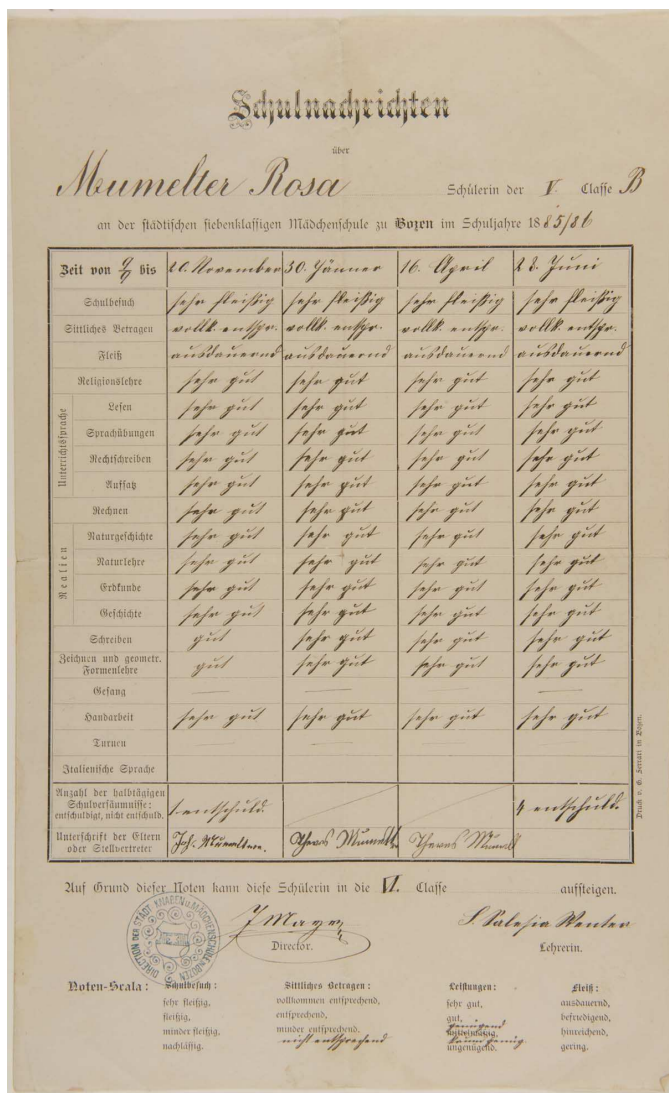 Schulnachrichten
über
Mumelter Rosa Schülerin der V. Classe B
an der städtischen siebenklassigen Mädchenschule zu Bozen im Schuljahre 1885/86
Zeit von bis 20. November 30. Jänner 16. April 28. Juni
Schulbesuch sehr fleißig sehr fleißig sehr fleißig sehr fleißig
Sittliches Betragen vollk. entspr. vollk. entspr. vollk. entspr. vollk. entspr.
Fleiß ausdauernd ausdauernd ausdauernd ausdauernd
Religionslehre sehr gut sehr gut sehr gut sehr gut
Unterrichtssprache
Lesen sehr gut sehr gut sehr gut sehr gut
Sprachübungen sehr gut sehr gut sehr gut sehr gut
Rechtschreiben sehr gut sehr gut sehr gut sehr gut
Aufsatz sehr gut sehr gut sehr gut sehr gut
Rechnen sehr gut sehr gut sehr gut sehr gut
Realien
Naturgeschichte sehr gut sehr gut sehr gut sehr gut
Naturlehre sehr gut sehr gut sehr gut sehr gut
Erdkunde sehr gut sehr gut sehr gut sehr gut
Geschichte sehr gut sehr gut sehr gut sehr gut
Schreiben gut sehr gut sehr gut sehr gut
Zeichnen und geometr. Formenlehre gut sehr gut sehr gut sehr gut
Gesang — — — —
Handarbeit sehr gut sehr gut sehr gut sehr gut
Turnen — — — —
Italienische Sprache
Anzahl der halbtägigen
Schulversäumnisse:
entschuldigt, nicht entschuld. 1 entschuld. 4 entschuld.
Unterschrift der Eltern
oder Stellvertreter Joh. Mumelter
Druck v. G. Ferrari in Bozen.
Auf Grund dieser Noten kann diese Schülerin in die VI. Classe aufsteigen.
DIRECTION DER STADT. KNABEN u. MÄDCHENSCHULE in BOZEN
J Mayr S. Salesia Wenter
Director. Lehrerin.
Noten-Scala: Schulbesuch: Sittliches Betragen: Leistungen: Fleiß:
sehr fleißig, vollkommen entsprechend, sehr gut, ausdauernd,
fleißig, entsprechend, gut, befriedigend,
minder fleißig, minder entsprechend. genügend mittelmäßig, hinreichend,
nachlässig. nicht entsprechend kaum genüg ungenügend. gering.